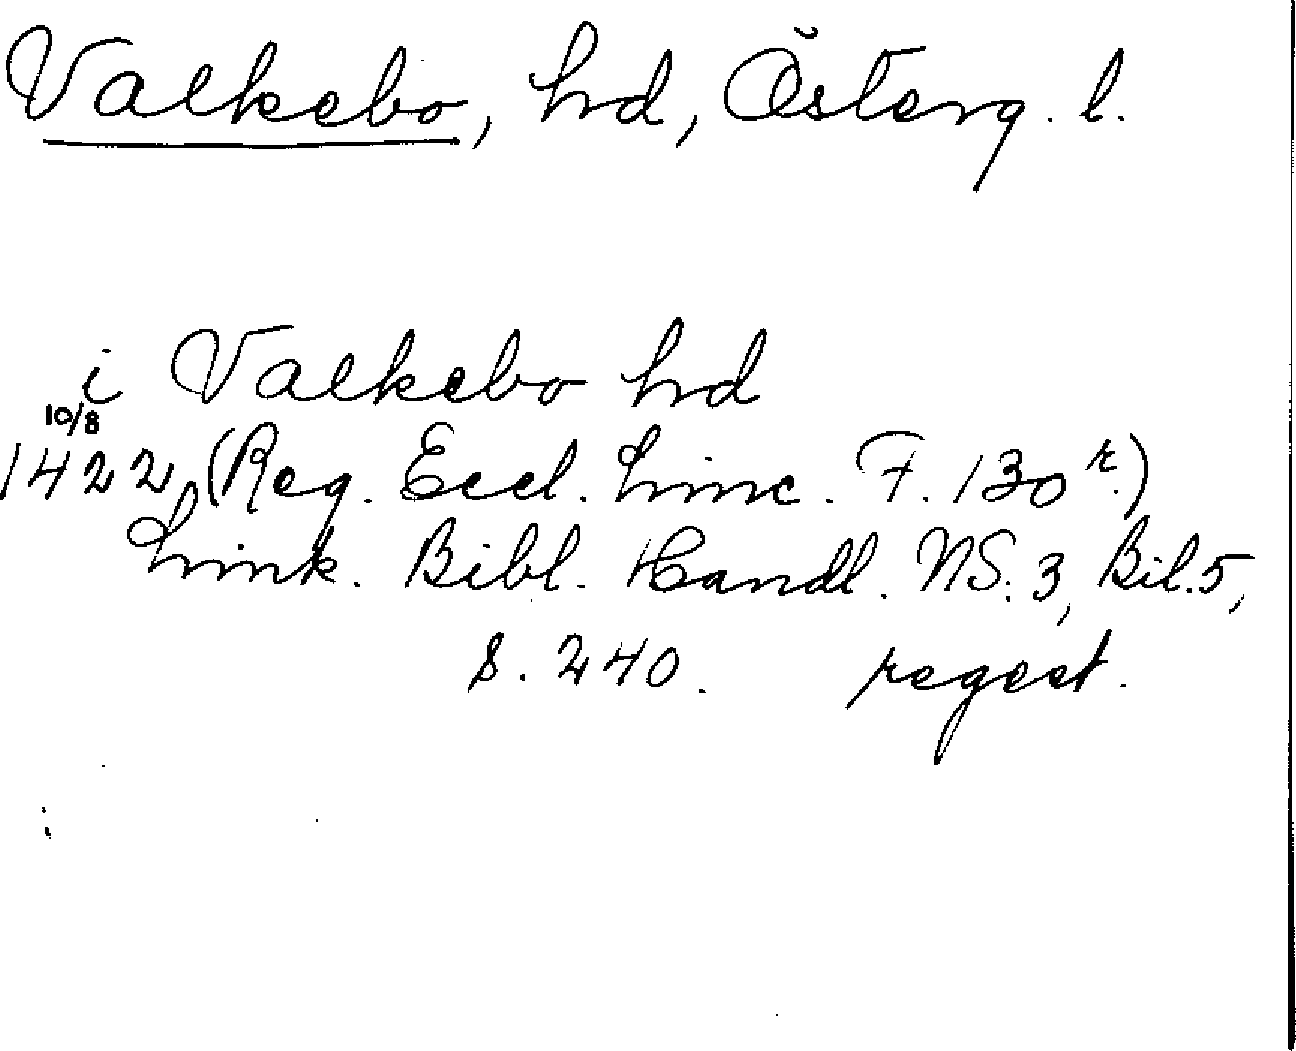 Valkebo, hd, Österg. l.
i Valkebo hd
10/8
1422 (Reg. Eccl. Linc. F. 130 r.)
Link. Bibl. Handl. NS. 3, Bil. 5,
s. 240. regest.